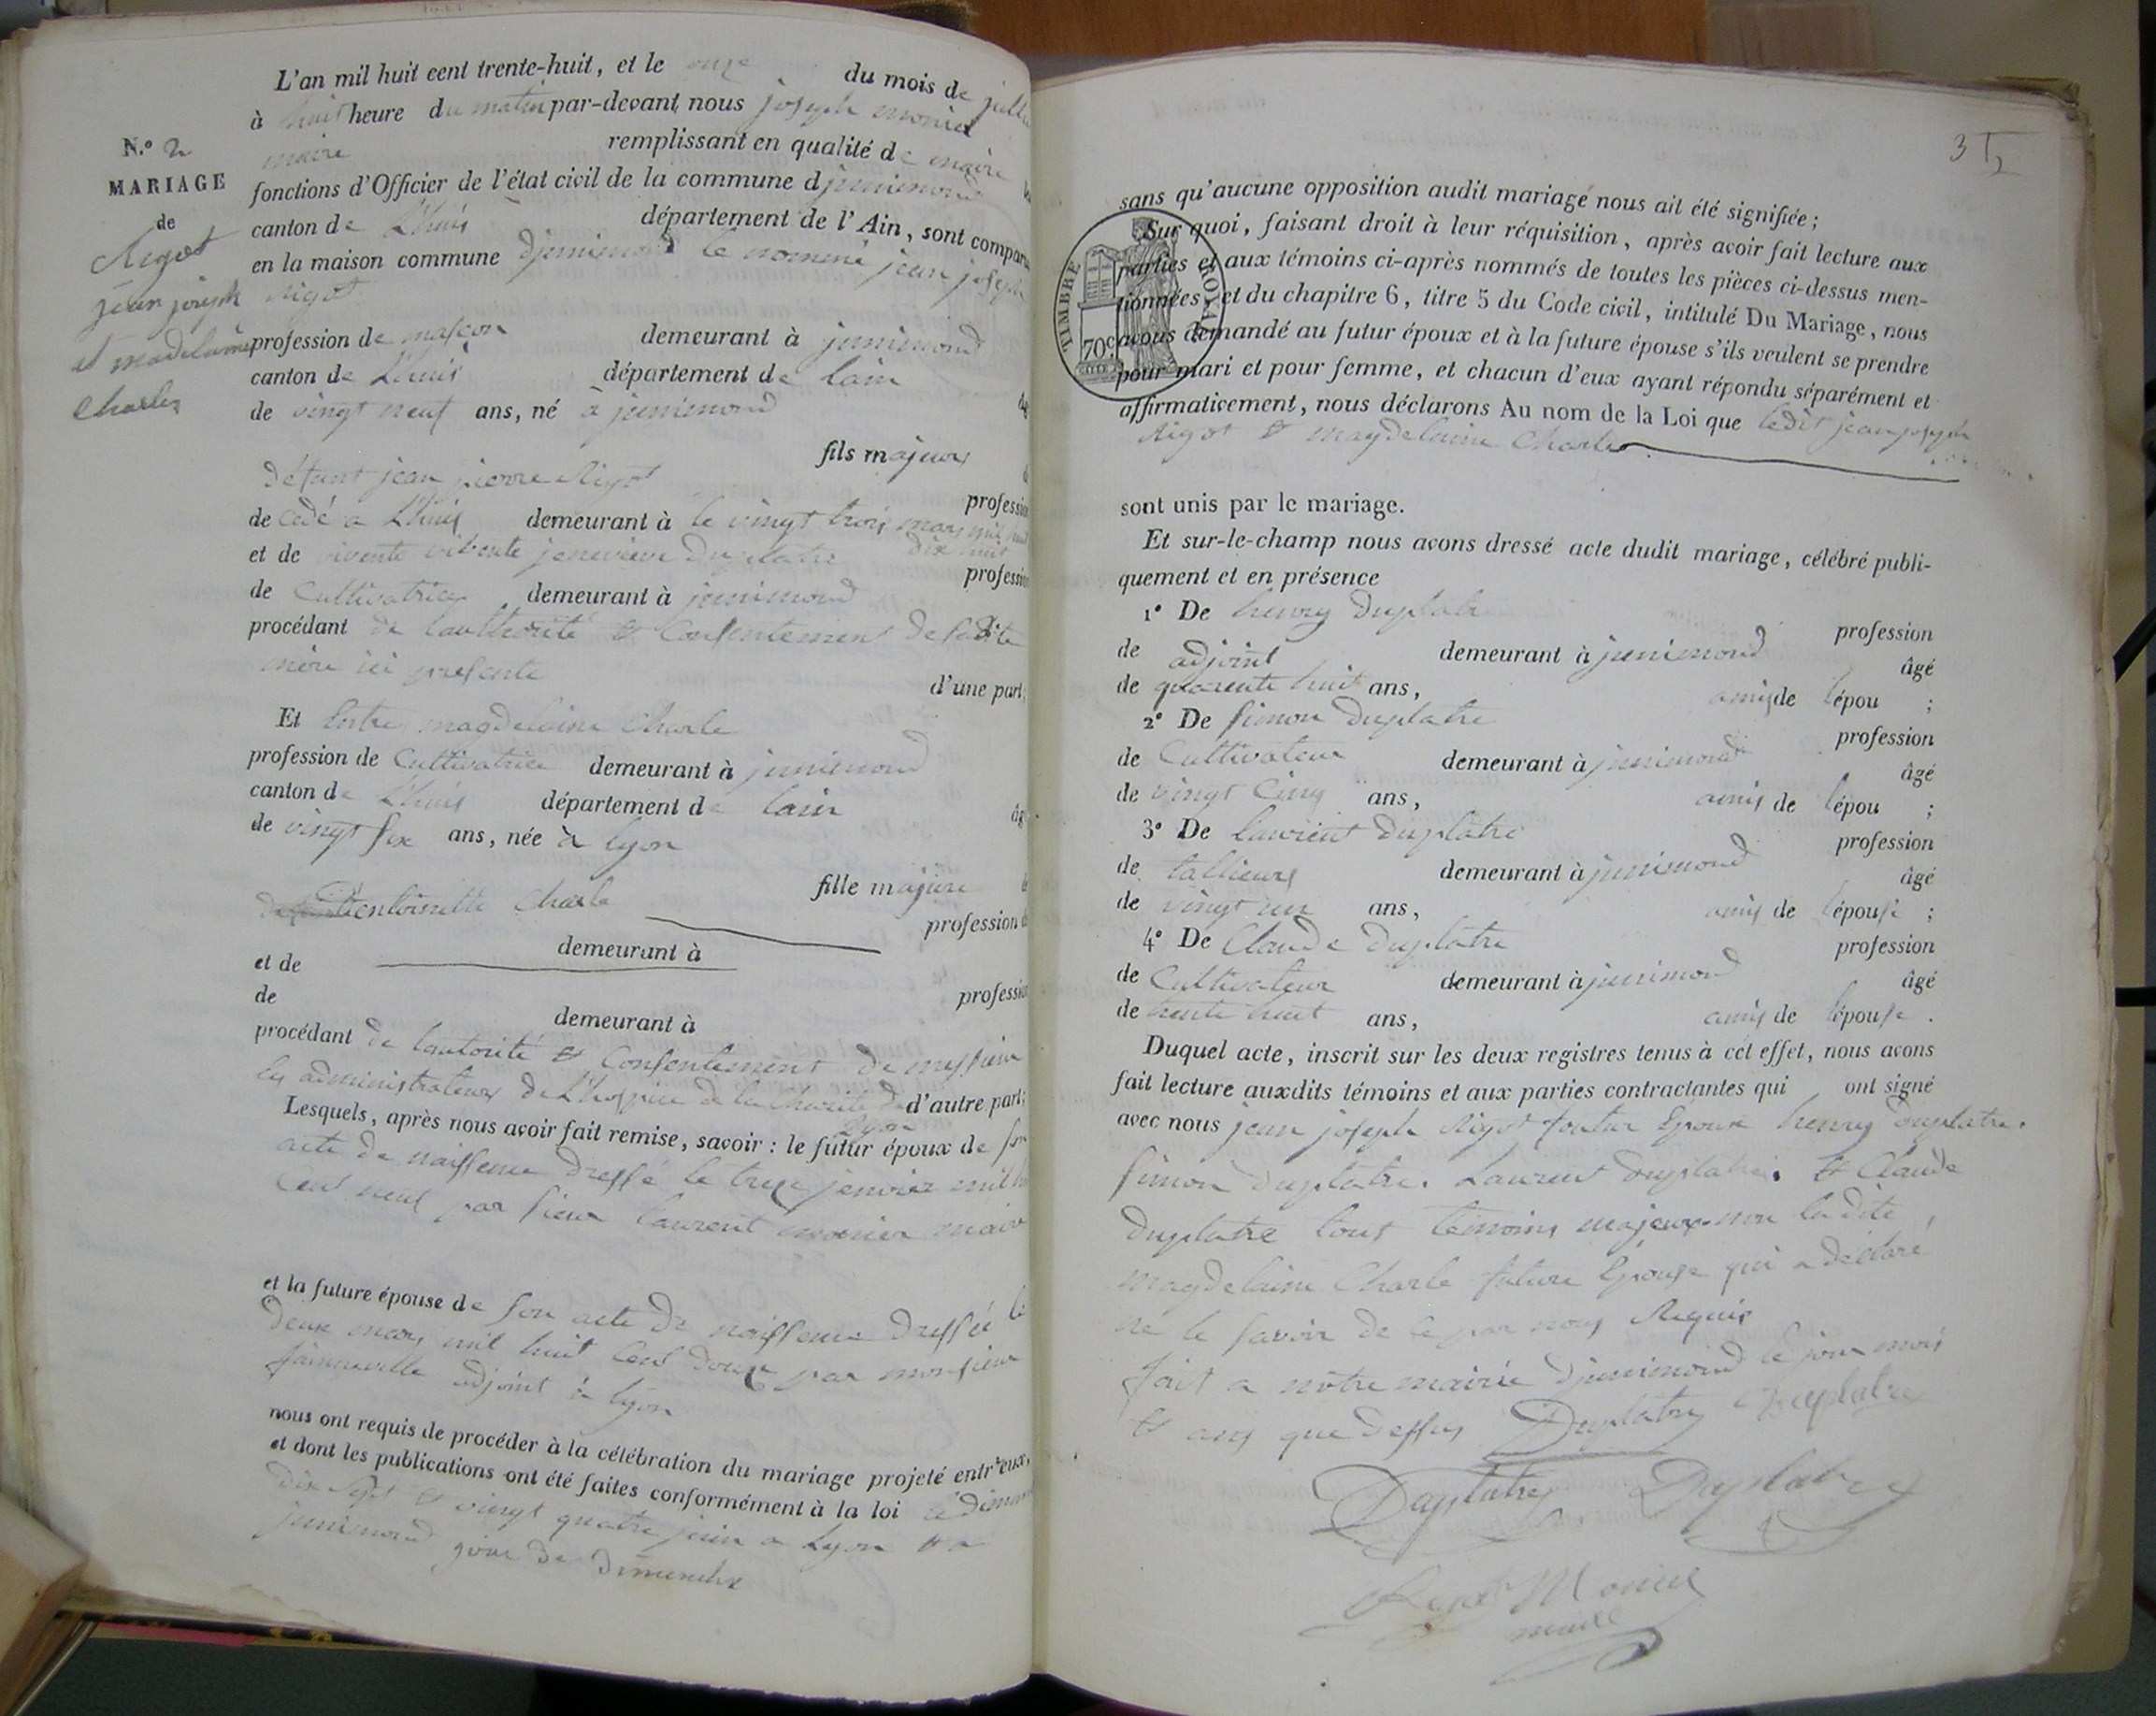 L'an mil huit cent trente-huit, et le onze du mois de
à huit heure du matin par-devant nous joseph monier
maire remplissant en qualité de maire
fonctions d'Officier de l'état civil de la commune djunimond
canton de Lhuis département de l'Ain, sont compar
en la maison commune djunimond le nommé jean joseph
Rigot
N.º 2
MARIAGE
de
Rigot
jean joseph
et madelaine
Charles
profession de masçon demeurant à junimond
canton de Lhuis département de lain
de vingt neuf ans, né à junimond
fils majeur
défunt jean pierre Rigot
profession
de cedé a Lhuis demeurant à le vingt trois mars mil huit
dix huit
et de jenevieve Duplatre
profession
de Cultivatrice demeurant à junimond
procédant de lauthorité et Consentement de sadite
mère ici presente
d'une part;
Et magdelaine Charle
profession de Cultivatrice demeurant à junimond
canton de Lhuis département de lain
de vingt six ans, née à lyon
fille majeure
Charle
profession d
demeurant à
et de
profession
de demeurant à
procédant de lautorité et Consentement de messieur
les administrateurs de Lhospice de la Charité de d'autre part;
lyon
Lesquels, après nous avoir fait remise, savoir: le futur époux de son
acte de naissence dressé le treze jenvier mil
Cent neuf par sieur laurent monier maire
et la future épouse de son acte de naissence dressé le
deux mars mil huit Cent douze par monsieur
adjoint à lyon
nous ont requis de procéder à la célébration du mariage projeté entr'eux,
et dont les publications ont été faites conformément à la loi
dix sept et vingt quatre juin a lyon et a
junimond jour de dimenche
3
sans qu'aucune opposition audit mariage nous ait été signifiée;
Sur quoi, faisant droit à leur réquisition, après avoir fait lecture aux
parties et aux témoins ci-après nommés de toutes les pièces ci-dessus men-
tionnées, et du chapitre 6, titre 5 du Code civil, intitulé Du Mariage, nous
avons demandé au futur époux et à la future épouse s'ils veulent se prendre
pour mari et pour femme, et chacun d'eux ayant répondu séparément et
affirmativement, nous déclarons Au nom de la Loi que ledit jean joseph
Rigot et magdelaine Charle
TIMBRE ROYAL
70c
sont unis par le mariage.
Et sur-le-champ nous avons dressé acte dudit mariage, célébré publi-
quement et en présence
1º De henry duplatre
profession
de adjoint demeurant à junimond
âgé
de quarente huit ans, amis de lépou ;
2º De simon duplatre
profession
de Cultivateur demeurant à junimond
âgé
de vingt Cinq ans, amis de lépou ;
3º De laurent duplatre
profession
de tallieurs demeurant à junimond
âgé
de vingt un ans, amis de lépouse ;
4º De Claude duplatre
profession
de Cultivateur demeurant à junimond
âgé
de trente huit ans, amis de lépouse .
Duquel acte, inscrit sur les deux registres tenus à cet effet, nous avons
fait lecture auxdits témoins et aux parties contractantes qui ont signé
avec nous jean joseph Rigot foutur Epoux henry duplatre.
simon duplatre. Laurent duplatre. et Claude
duplatre tous témoins majeurs non ladite
magdelaine Charle future Epouse qui a déclaré
ne le savoir de ce par nous Requis
fait a notre mairie djunimond le jour mois
et ans que dessus Duplatre Duplatre
Duplatre Duplatre
Rigot Monier
maire